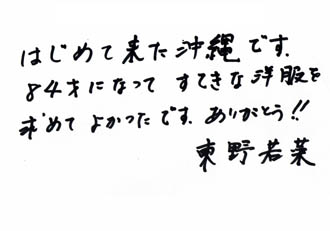 はじめて来た沖縄です.
84才になって すてきな洋服を
求めて よかったです. ありがとう!!
東野若菜